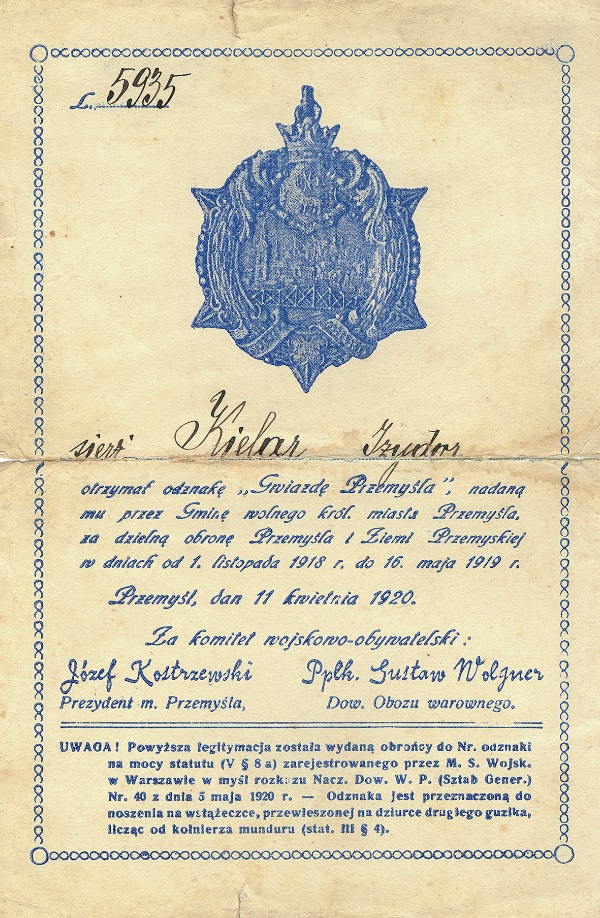 L. 5935
sierż. Kielar Izydor
otrzymał odznakę „Gwiazdę Przemyśla”, nadaną
mu przez Gminę wolnego król. miasta Przemyśla,
za dzielną obronę Przemyśla i Ziemi Przemyskiej
w dniach od 1. listopada 1918 r. do 16. maja 1919 r.
Przemyśl, dan 11 kwietnia 1920.
Za komitet wojskowo-obywatelski:
Józef Kostrzewski Pplk. Gustaw Wolgner
Prezydent m. Przemyśla, Dow. Obozu warownego.
UWAGA! Powyższa legitymacja została wydaną obrońcy do Nr. odznaki
na mocy statutu (V § 8 a) zarejestrowanego przez M. S. Wojsk.
w Warszawie w myśl rozkazu Nacz. Dow. W. P. (Sztab Gener.)
Nr. 40 z dnia 5 maja 1920 r. — Odznaka jest przeznaczoną do
noszenia na wstążeczce, przewieszonej na dziurce drugiego guzika,
licząc od kołnierza munduru (stat. III § 4).